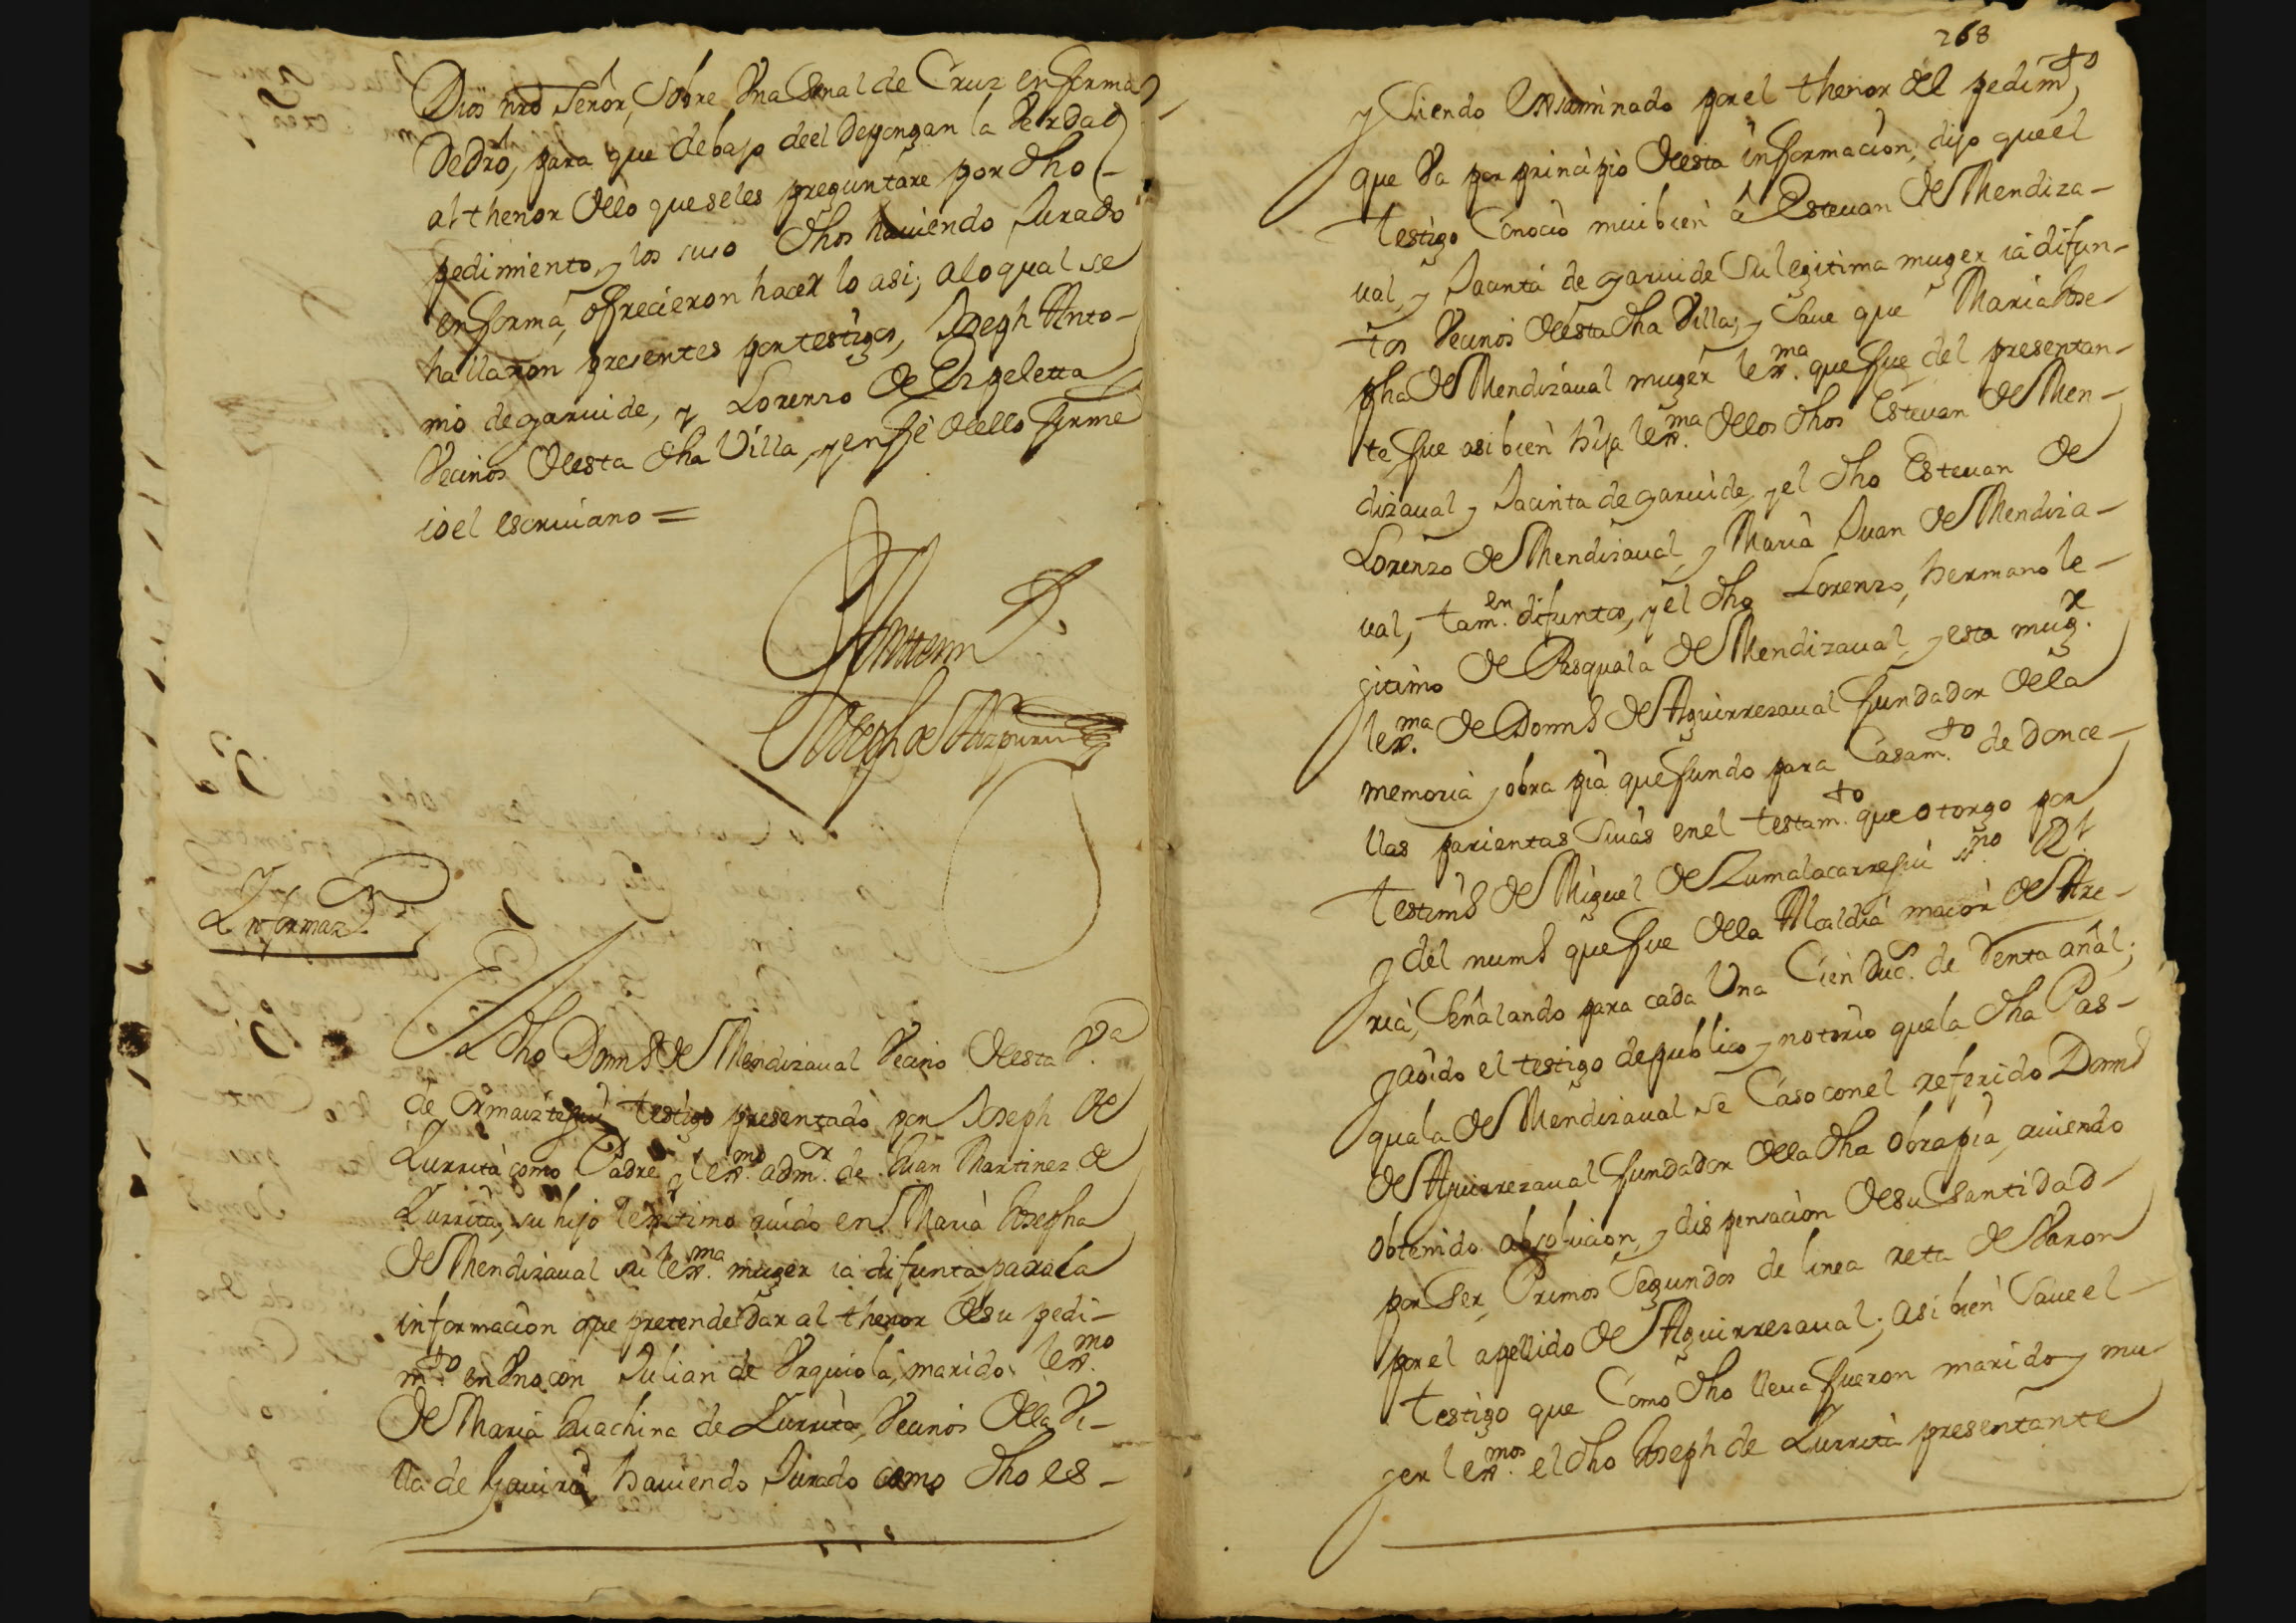 Dios nro Señor, sobre Vna Senal de Cruz en forma
De dro, para que debajo de el Depongan la Verdad
al thenor dello que seles preguntare por dho
pedimiento, y los suso dhos hauiendo Jurado
en forma, ofrecieron hacer lo asi; alo qual se
hallaron presentes por testigos, Joseph Anto-
nio de garuide, y Lorenzo de Ezpeletta
Vecinos desta dha Villa, y en fè dello firme
io el escriuano =
Antemi
Joseph de Aizpuru
Informaz.n
El dho Domo de Mendizaual Vecino desta V.a
de Ormaiztegui testigo presentado por Joseph de
Zurrita como Padre y lexmo. admr. de Juan Martinez de
Zurrita, su hijo lexitimo auido en Maria Josepha
de Mendizaual su lexma. muger ia difunta para la
informacion que pretende dar al thenor de su pedi-
mto. en Vno con Julian de Vrquiola, marido lexmo.
de Maria Juachina de Zurrita, Vecinos della Vi-
lla de Gauiria, hauiendo Jurado como dho es-
268
y Siendo Exsaminado por el thenor del pedimto,
que Va por principio desta informacion, dijo que el
testigo Conocio mui bien à Esteuan de Mendiza-
ual, y Jacinta de garuide Su legitima muger ia difun-
tos Vecinos desta dha Villa, y Saue que Maria Jose-
pha de Mendizaual muger lexma. que fue del presentan-
te fue asi bien hija lexma. dellos dhos Esteuan de Men-
dizaual y Jacinta de garuide, y el dho Esteuan de
Lorenzo de Mendizaual, y Maria Juan de Mendiza-
ual, tamen. difuntos, y el dho Lorenzo, hermano le-
gitimo de Pasquala de Mendizaual, y esta mugr.
lexma. de Domo de Aguirrezaual fundador della
memoria y obra pia que fundo para Casamto. de donce-
llas parientas Suias en el testamto. que otorgo por
testimo de Miguel de Zumalacarregui sno. Rl.
y del numo que fue della Alcaldia maior de Are-
ria, Señalando para cada Vna Cien Duc.s de Venta añal;
y a oido el testigo de publico y notorio que la dha Pas-
quala de Mendizaual se Caso con el referido Domo
de Aguirrezaual fundador della dha obra pia, auiendo
obtenido absolucion, y dispensacion de su Santidad
por Ser Primos Segundos de linea reta de Varon
por el apellido de Aguirrezaual; asi bien Saue el
testigo que Como dho lleua fueron marido y mu-
ger lexmos. el dho Joseph de Zurrita presentante